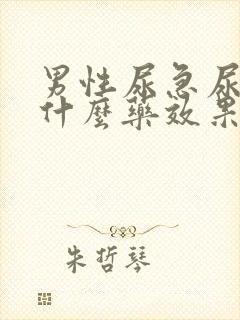 男性尿急尿
什麼藥效果
朱哲琴